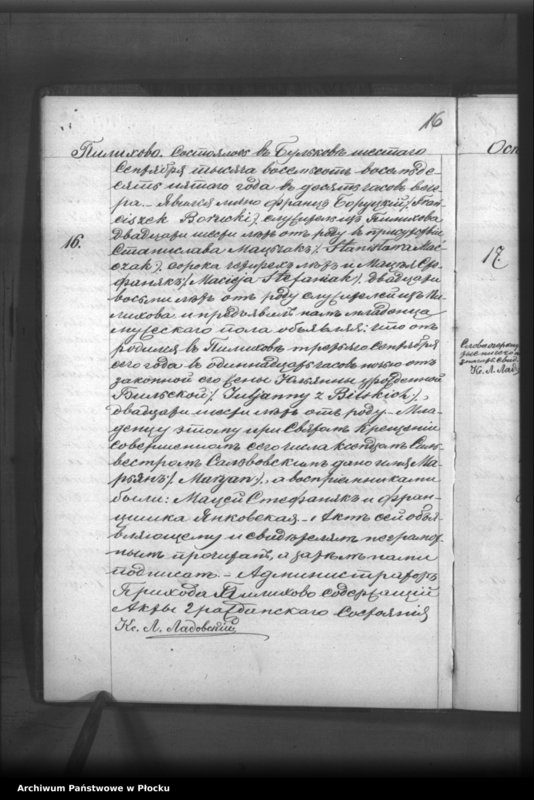 16
Пилихово. Состоялось въ Бульковѣ шестого
Сентября тысяча восемьсотъ восемьде-
сятъ пятого года въ десять часовъ вече-
ра. Явился лично Францъ Боруцкiй /: Fran-
ciszek Borucki :/ служащiй изъ Пилихова
двадцати шести лѣтъ отъ роду въ присутствiи
16.
Станислава Мацчакъ /: Stanisława Mac-
czak :/ сорока четырехъ лѣтъ и Мацѣя Сте-
фанякъ /: Macieja Stefaniak :/ двадцати
восьми лѣтъ отъ роду служителей изъ Пи-
лихова и предъявилъ намъ младенца
мужеского пола объявляя: что онъ
родился въ Пилиховѣ третьяго Сентября
сего года въ одиннадцать часовъ ночью отъ
законной его жены Юлiянны урожденной
Бильской /: Julianny z Bilskich :/
двадцати шести лѣтъ отъ роду. Мла-
денцу этому при Святомъ Крещенiи
совершенномъ сего числа ксендзомъ Силь-
вестромъ дано имя Ма-
рьянъ /: Maryan :/, а воспрiемниками
были: Мацей Стефанякъ и Фран-
цишка Янковская. Актъ сей объя-
вляющему и свидѣтелямъ неграмот-
нымъ прочитанъ, а затѣмъ нами
подписанъ. Администраторъ
Прихода Пилихово содержащiй
Акты Гражданскаго Состоянiя
Кс. Л. Ладовскiй
Ост
17
Кс. Л. Ладо
Archiwum Państwowe w Płocku